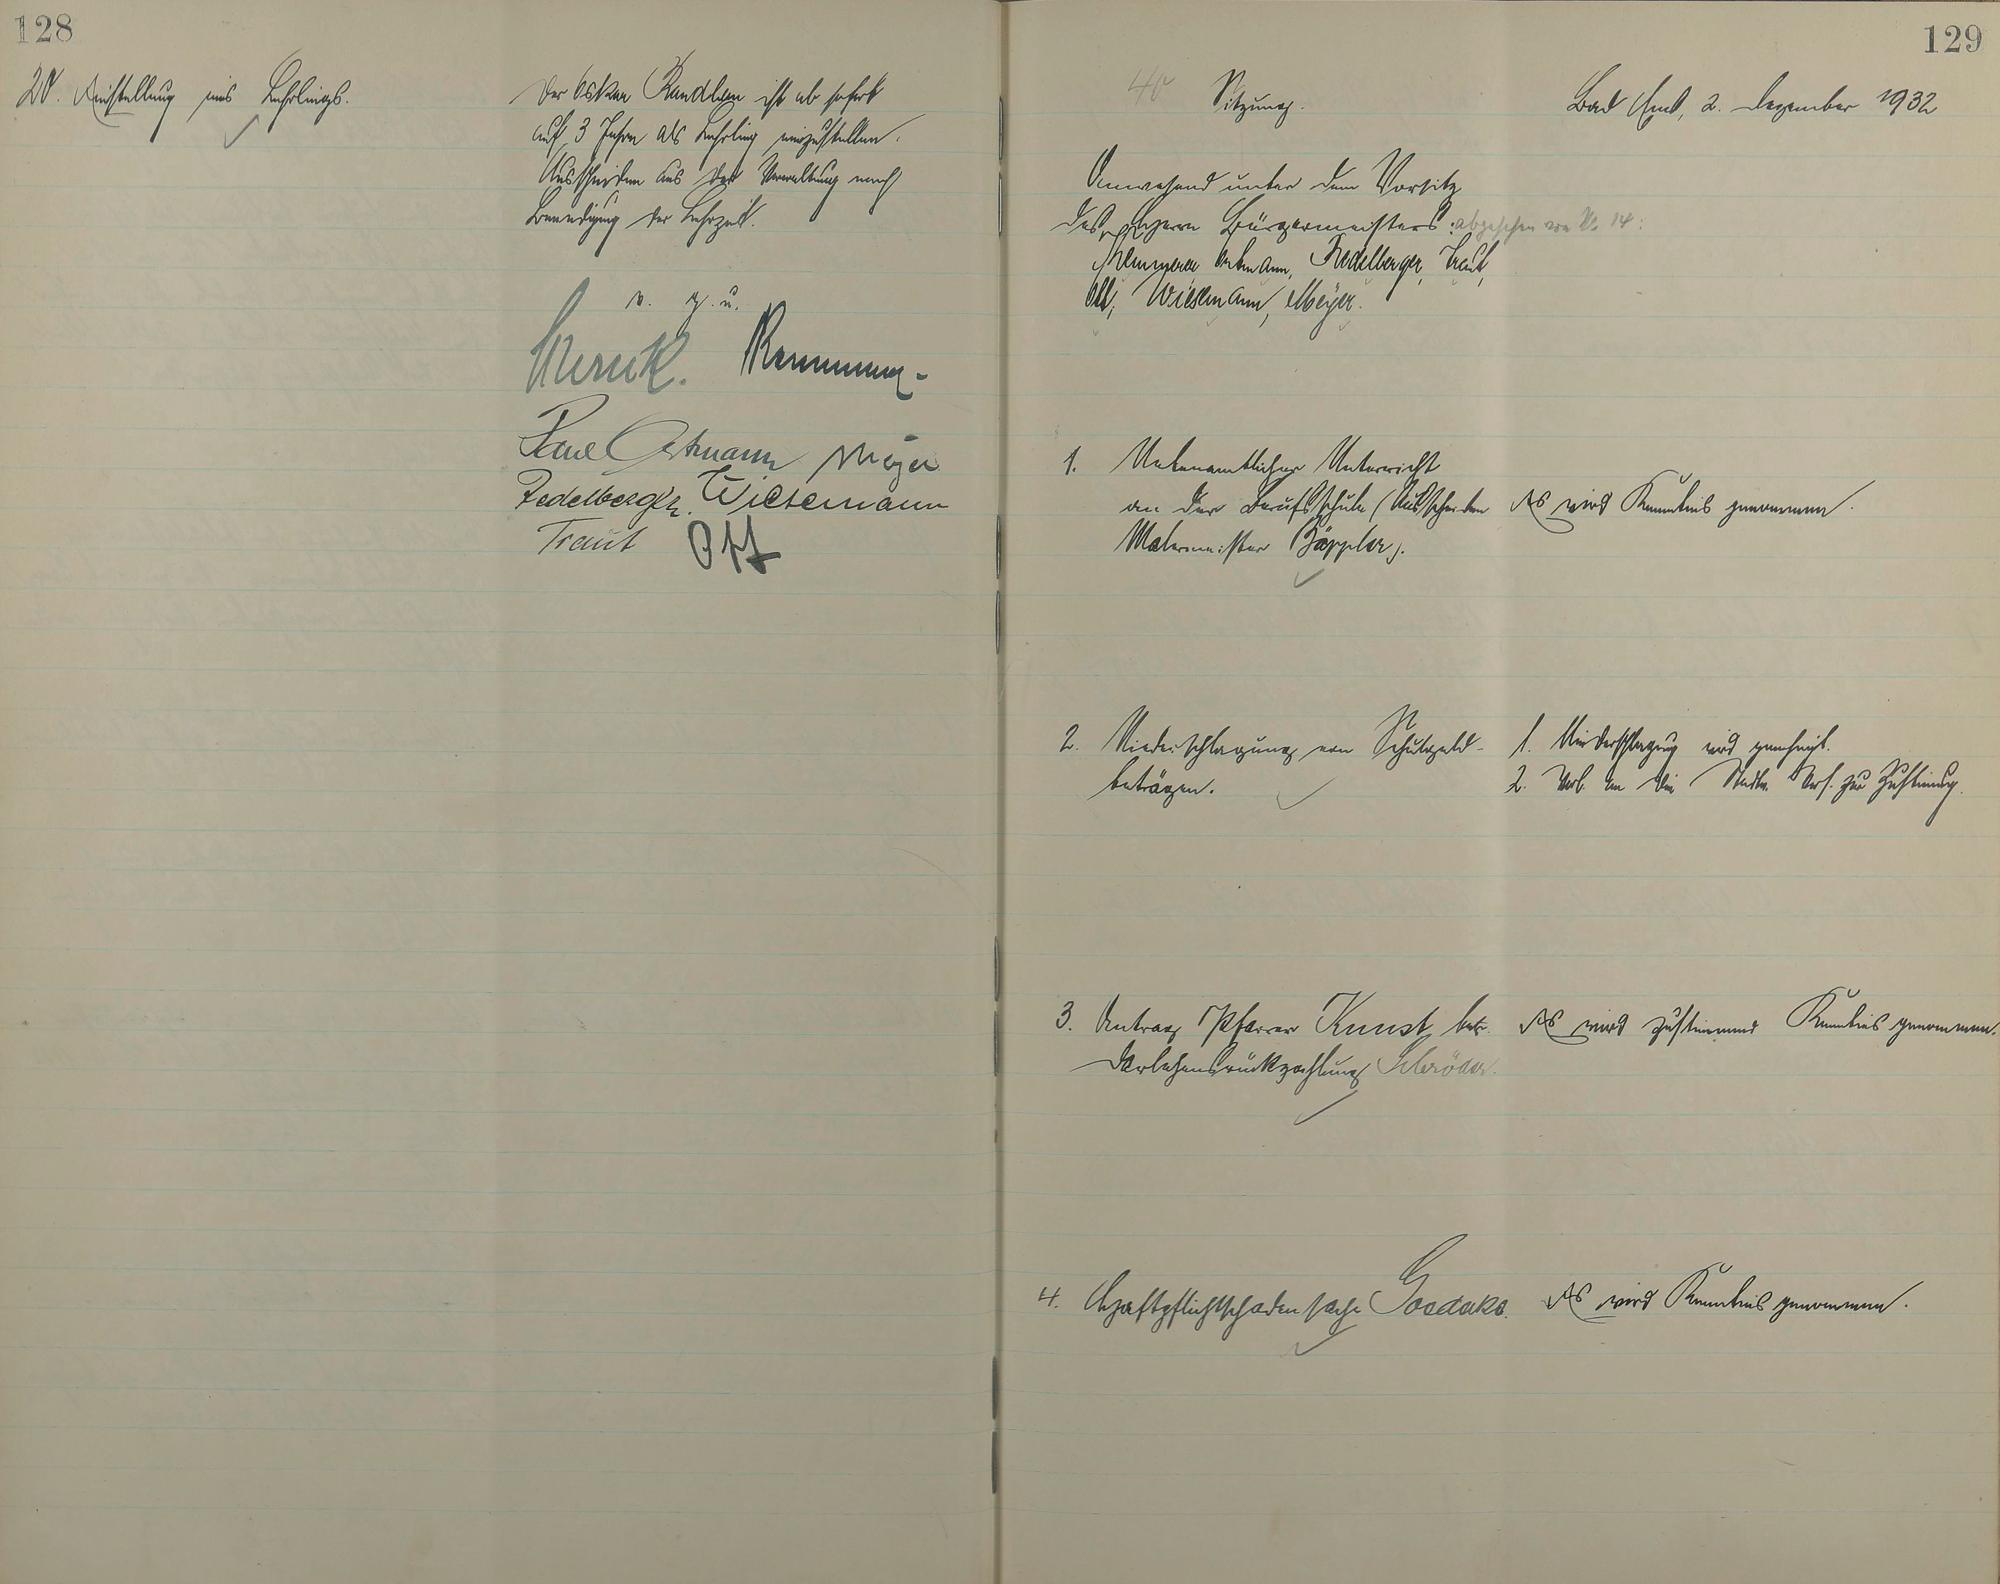 128
20. Einstellung eines Lehrlings.
Der Oskar Kandler ist ab sofort
auf 3 Jahre als Lehrling einzustellen.
Ausscheiden aus der Verwaltung nach
Beendigung der Lehrzeit.
v. g. u.
Karl Ortmann Meyer
Redelberger. Wiesemann
Traut Ott
129
40 Sitzung. Bad Ems, 2. Dezember 1932
Anwesend unter dem Vorsitz
des Herrn Bürgermeisters: abgesehen von No 14:
Ortmann, Redelberger, Traut,
Ott, Wiesemann, Meyer.
1. Nebenamtlicher Unterricht
an der Berufsschule (Ausscheiden
Malermeister Göppler).
Es wird Kenntnis genommen.
2. Niederschlagung von Schulgeld-
beträgen.
1. Niederschlagung wird genehmigt.
2. Vorl. an die Stadtv. Vers. zur Zustimmung.
3. Antrag Pfarrer Kunst betr.
Darlehensrückzahlung Schröder.
Es wird zustimmend Kenntnis genommen.
4. Haftpflichtschadensache Goedake.
Es wird Kenntnis genommen.